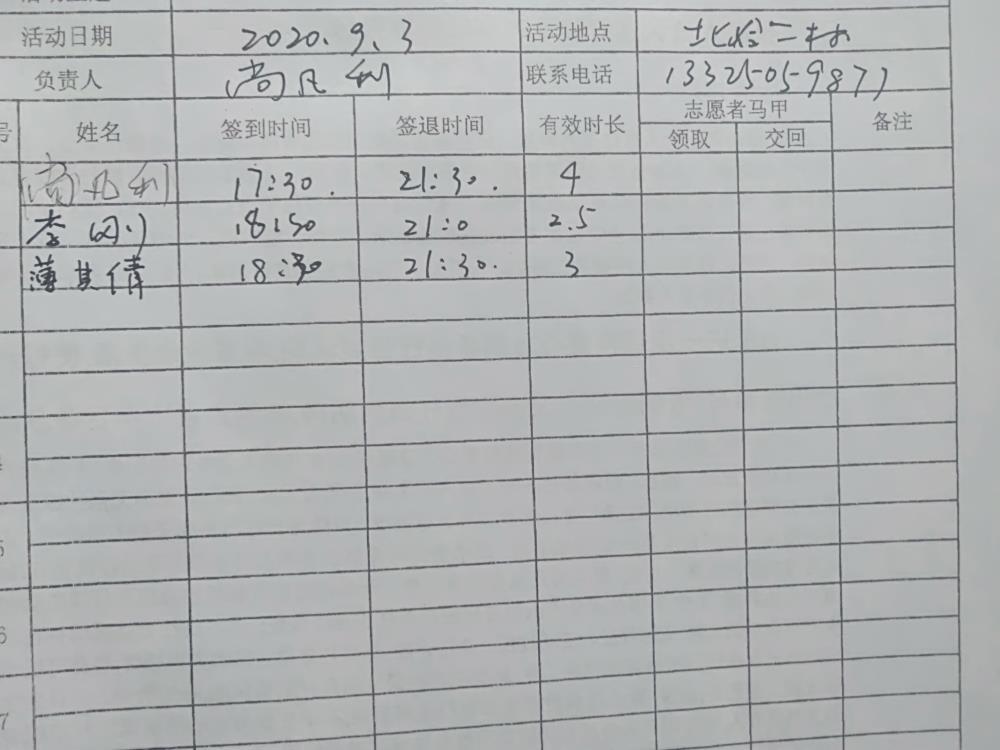 活动日期 2020.9.3 活动地点
负责人 尚凡利 联系电话 13325059877
姓名 签到时间 签退时间 有效时长 志愿者马甲 领取 交回 备注
尚凡利 17:30. 21:30. 4
李刚 18:50 21:0 2.5
薄其倩 18:30 21:30. 3
5
6
7